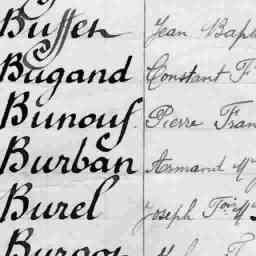 Buffet Jean Bapt
Bugand Constant F
Bunouf Pierre Fran
Burban Armand M
Burel Joseph